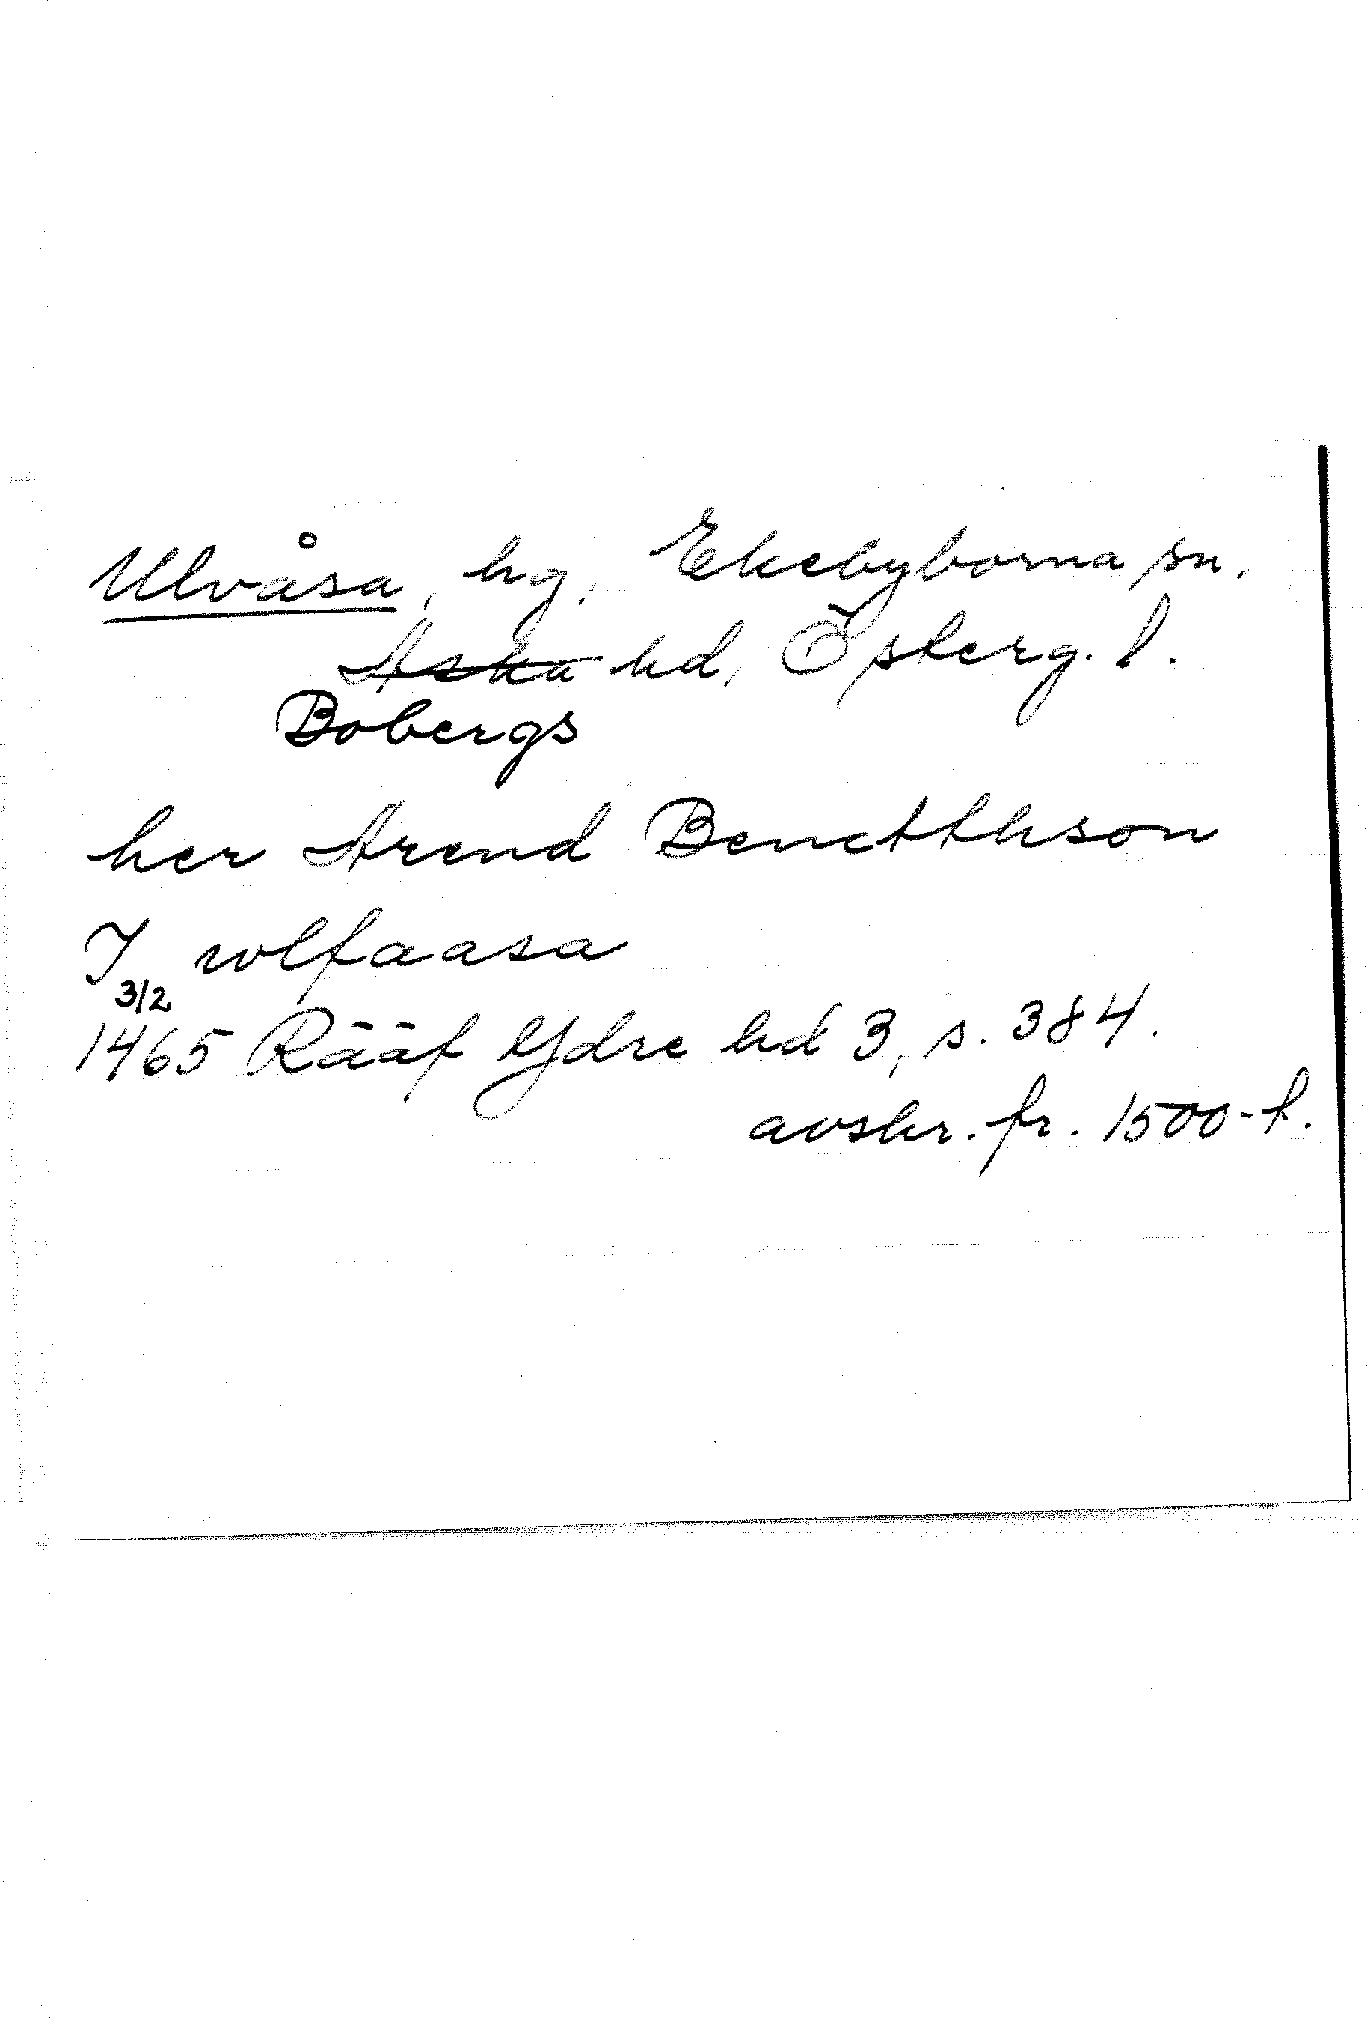 Ulvåsa, hg, Ekebyborna sn.
Aska hd, Österg. l.
Bobergs
her Arend Benctthson
I wlfaasa
3/2
1465 Rääf Ydre hd 3, s. 384.
avskr. fr. 1500-t.